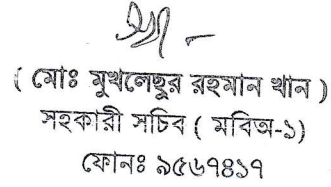 ( মোঃ মুখলেছুর রহমান খান )
সহকারী সচিব ( মবিঅ-১)
ফোনঃ ৯৫৬৭৪১৭